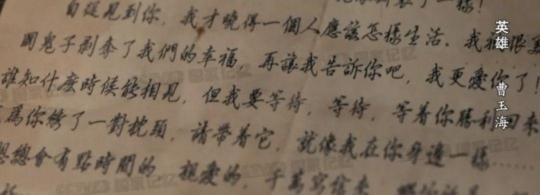 了一樣！
自從見到你，我才曉得一個人應該怎樣生活。我
國鬼子剝奪了我們的幸福，再讓我告訴你吧，我更愛你了！
誰知什麼時候能相見，但我要等待，等待，等着你勝利回來
為你繡了一對枕頭，請帶着它，就像我在你身邊一樣……
總會有點時間的，親愛的，千萬寫信來
英雄 曹玉海